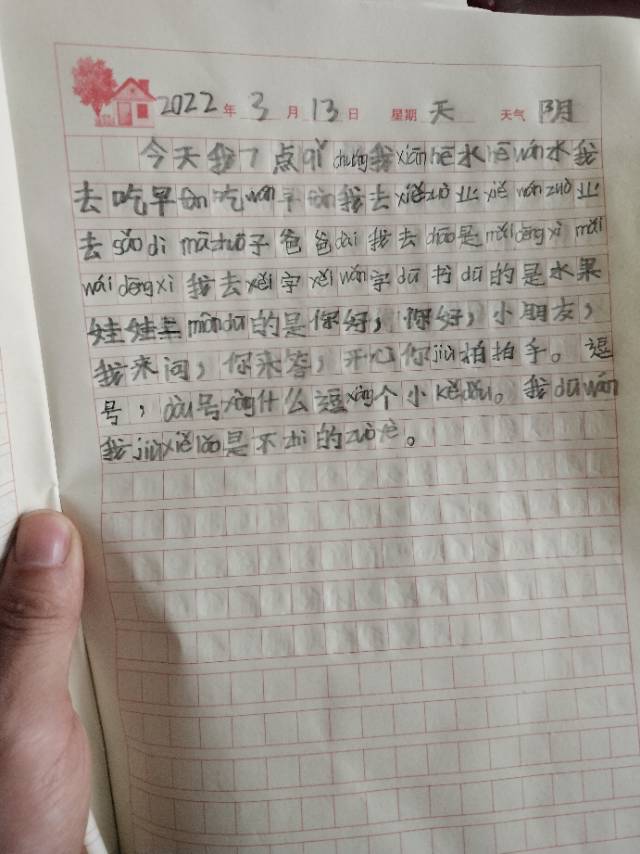 2022年3月13日 星期天 天气阴
今天我7点qǐ chuáng我xiān hē水hē wán水我
去吃早fàn吃wán早fàn我去xiě zuò业xiě wán zuò业
去sǎo dì mā zhuō子爸爸dài我去chāo是mǎi dēng xī mǎi
wái dēng xi我去xiěi字xiěi wán字dú书dú的是水果
娃娃 mōn dú的是你好，你好，小朋友，
我来问，你来答，开心你jiù拍拍手。逗
号，dòu号xiàng什么逗xiàng个小kē dǒu。我dú wán
我jiù xiě lǎo是不zhì的zuò yè。